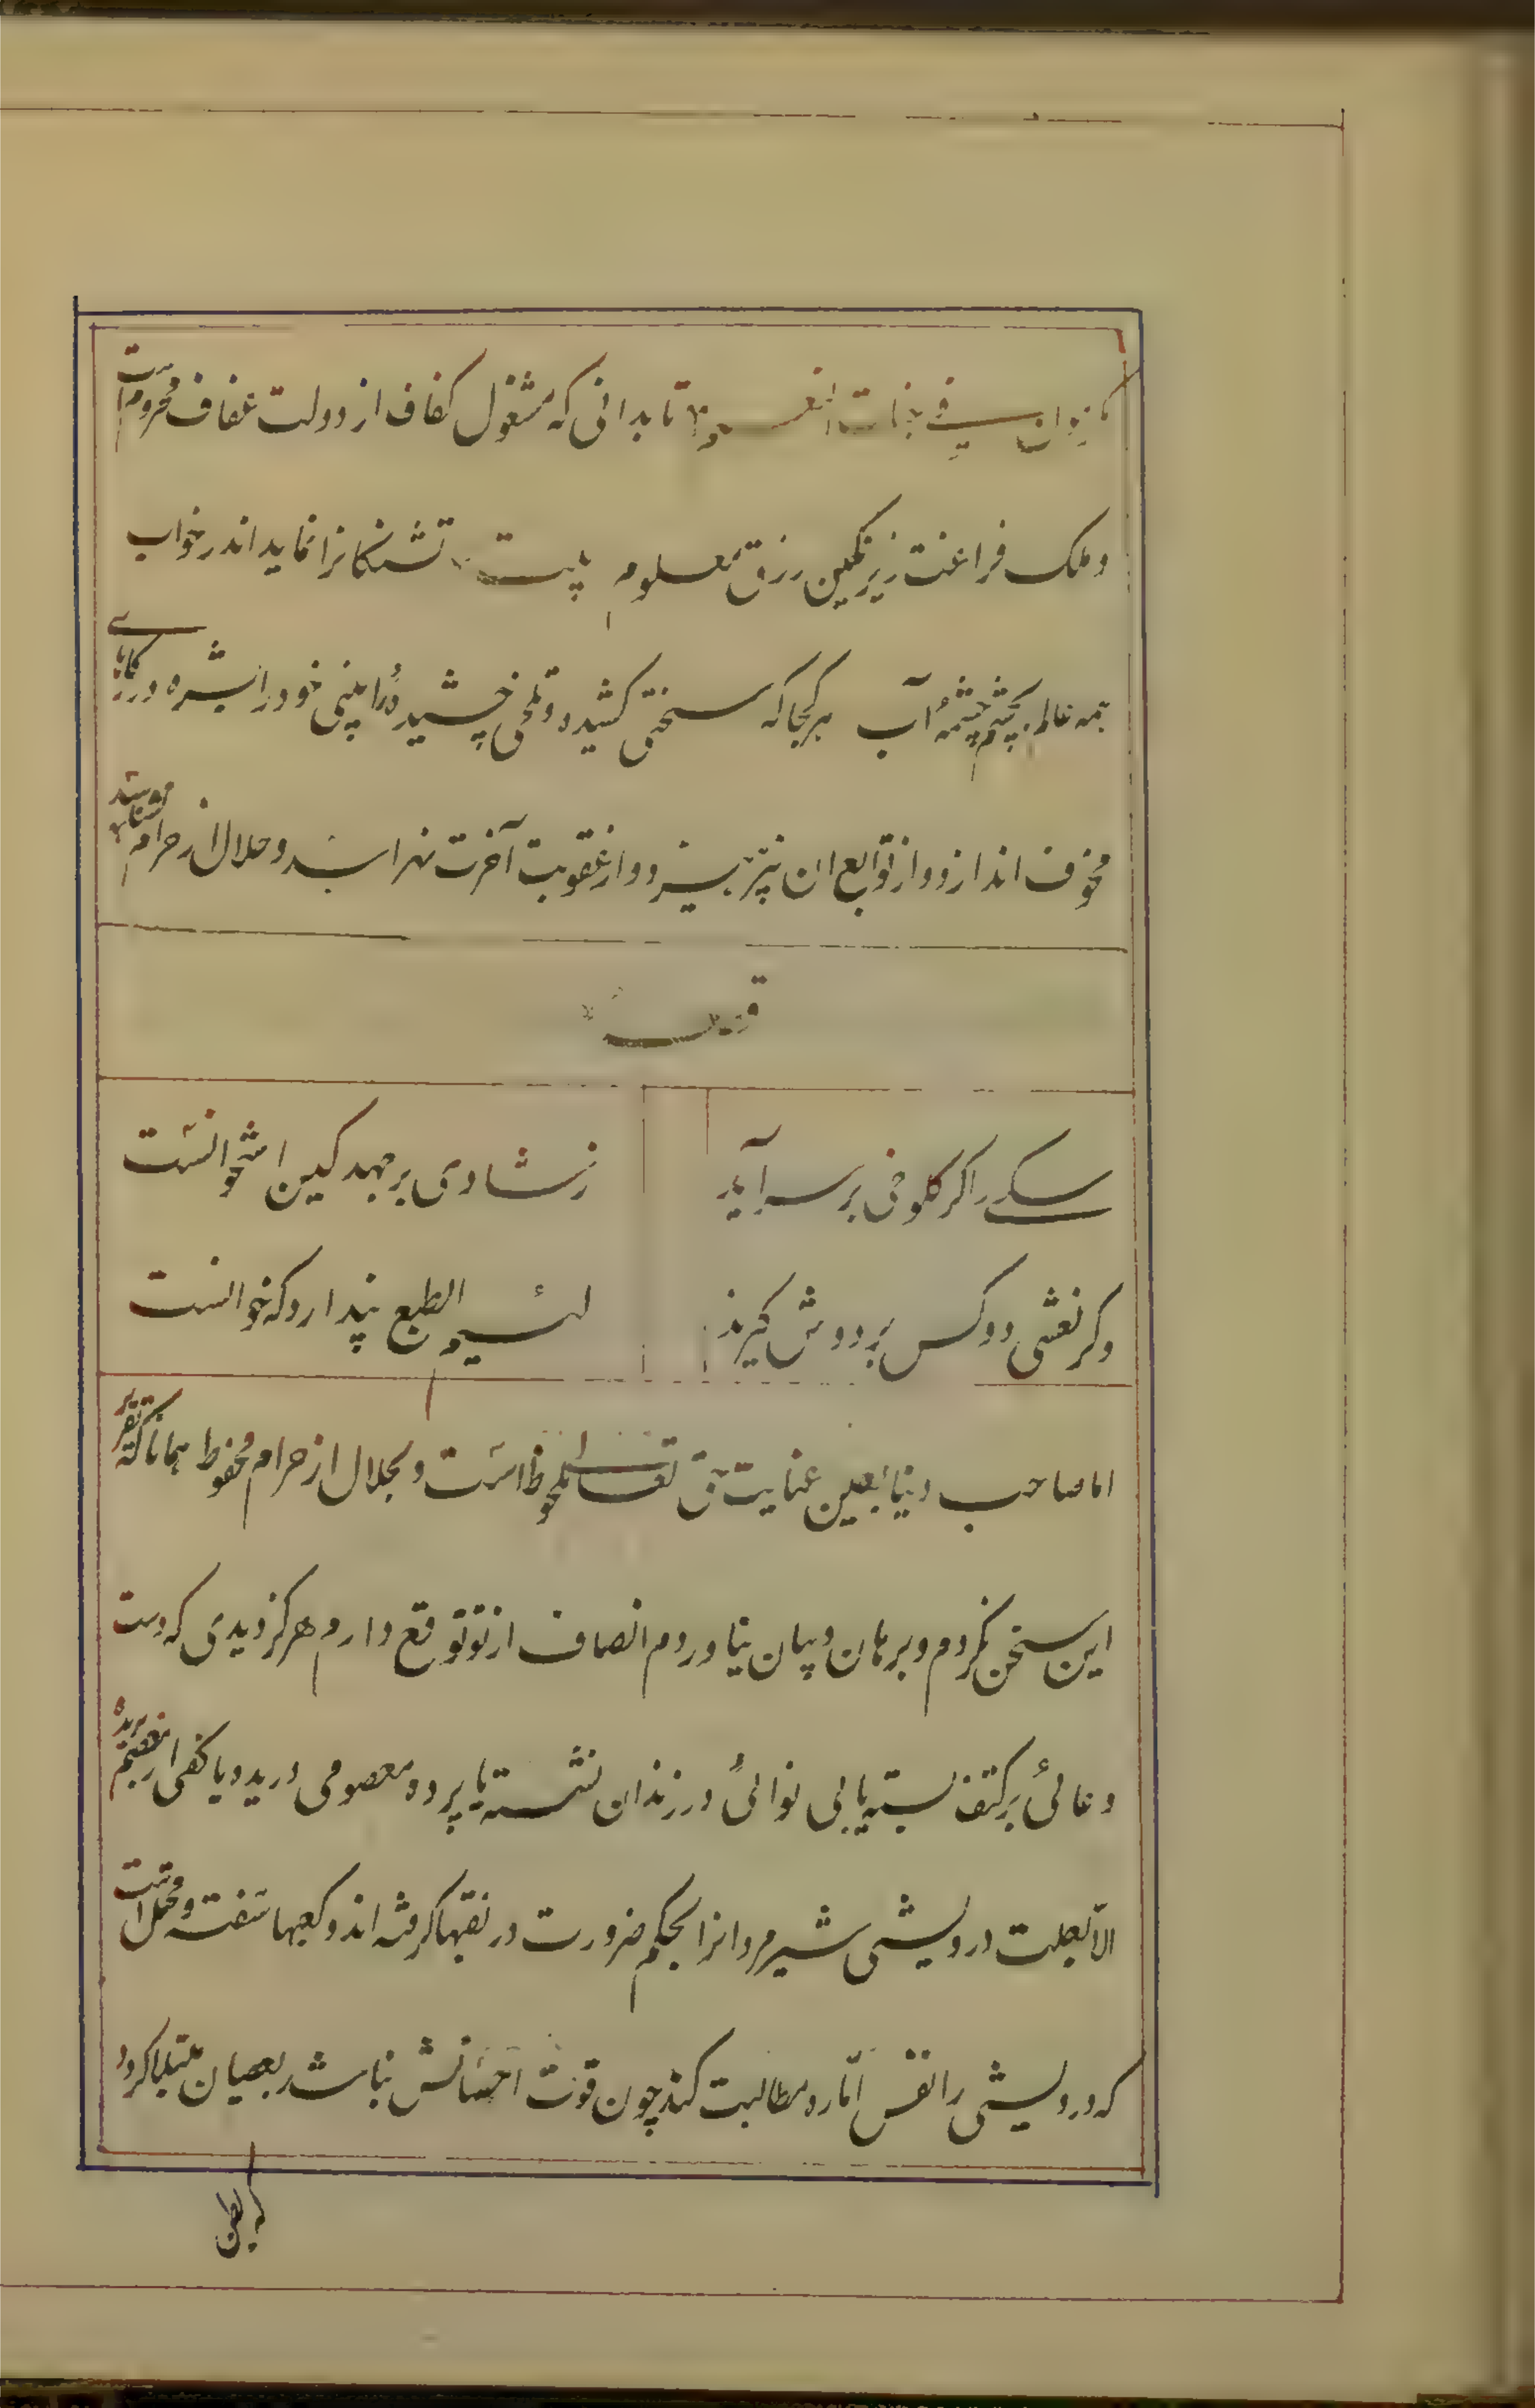 تا بدانی که مشغول کفاف از دولت عفاف محروم است
و ملک فراغت زیر نکین رزق معلوم بیت تشنکانرا نماید اندر خواب
همه عالم بچشم چشمهٔ آب هر کجا که سختی کشیده و تلخی چشیدهٔ را بینی خود را بشره در کارهای
مخوف اندازد و از توابع ان نپرهیزد و از عقوبت آخرت نهراسد و حلال از حرام نشناسد
سکی را کر کلوخی بر سر آید
ز شادی بر جهد کین استخوانست
و کر نعشی دو کس بر دوش کیرند
لئیم الطبع پندارد که خوانست
اما صاحب دنیا بعین عنایت حق تعالی ملحوظ است و بحلال از حرام محفوظ همانا که تقریر
این سخن نکردم و برهان و بیان نیاوردم انصاف از تو توقع دارم هرکز دیدی که دست
دعائی بر کتف بسته یا بی نوائی در زندان نشسته یا پرده معصومی دریده یا کفی از معصم بریده
الا بعلت درویشی شیر مردانرا بحکم ضرورت در نقبها کرفته اند و کعبها سفته و محتمل است
که درویشی را نفس اماره مطالبت کند چون قوت احسانش نباشد بعصیان مبتلا کردد
که بطن